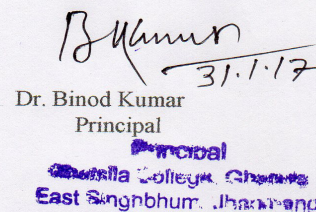 BKumar
31.1.17
Dr. Binod Kumar
Principal
Principal
College, Ghatsila
East Singhbhum, Jharkhand